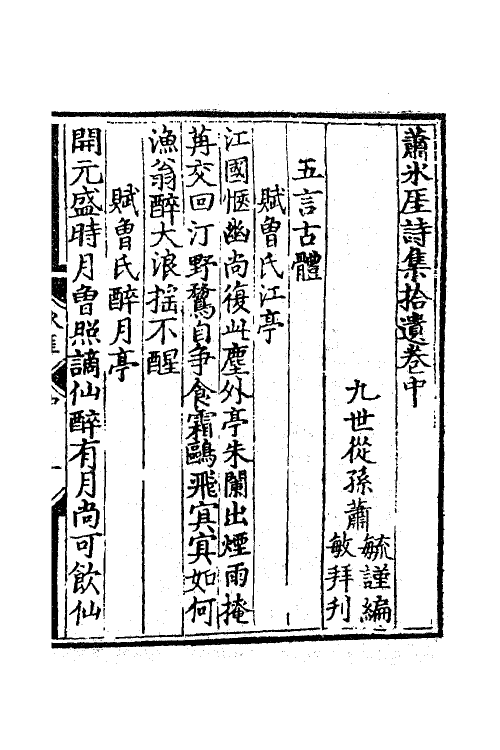 蕭氷厓詩集拾遺卷中
九世從孫蕭
敏拜刋
毓謹編
五言古體
賦曾氏江亭
江國愜幽尚復此塵外亭朱闌出煙雨掩
苒交回汀野鶩自爭食霜鷗飛㝠㝠如何
漁翁醉大浪揺不醒
賦曾氏醉月亭
開元盛時月曽照謫仙醉有月尚可飲仙